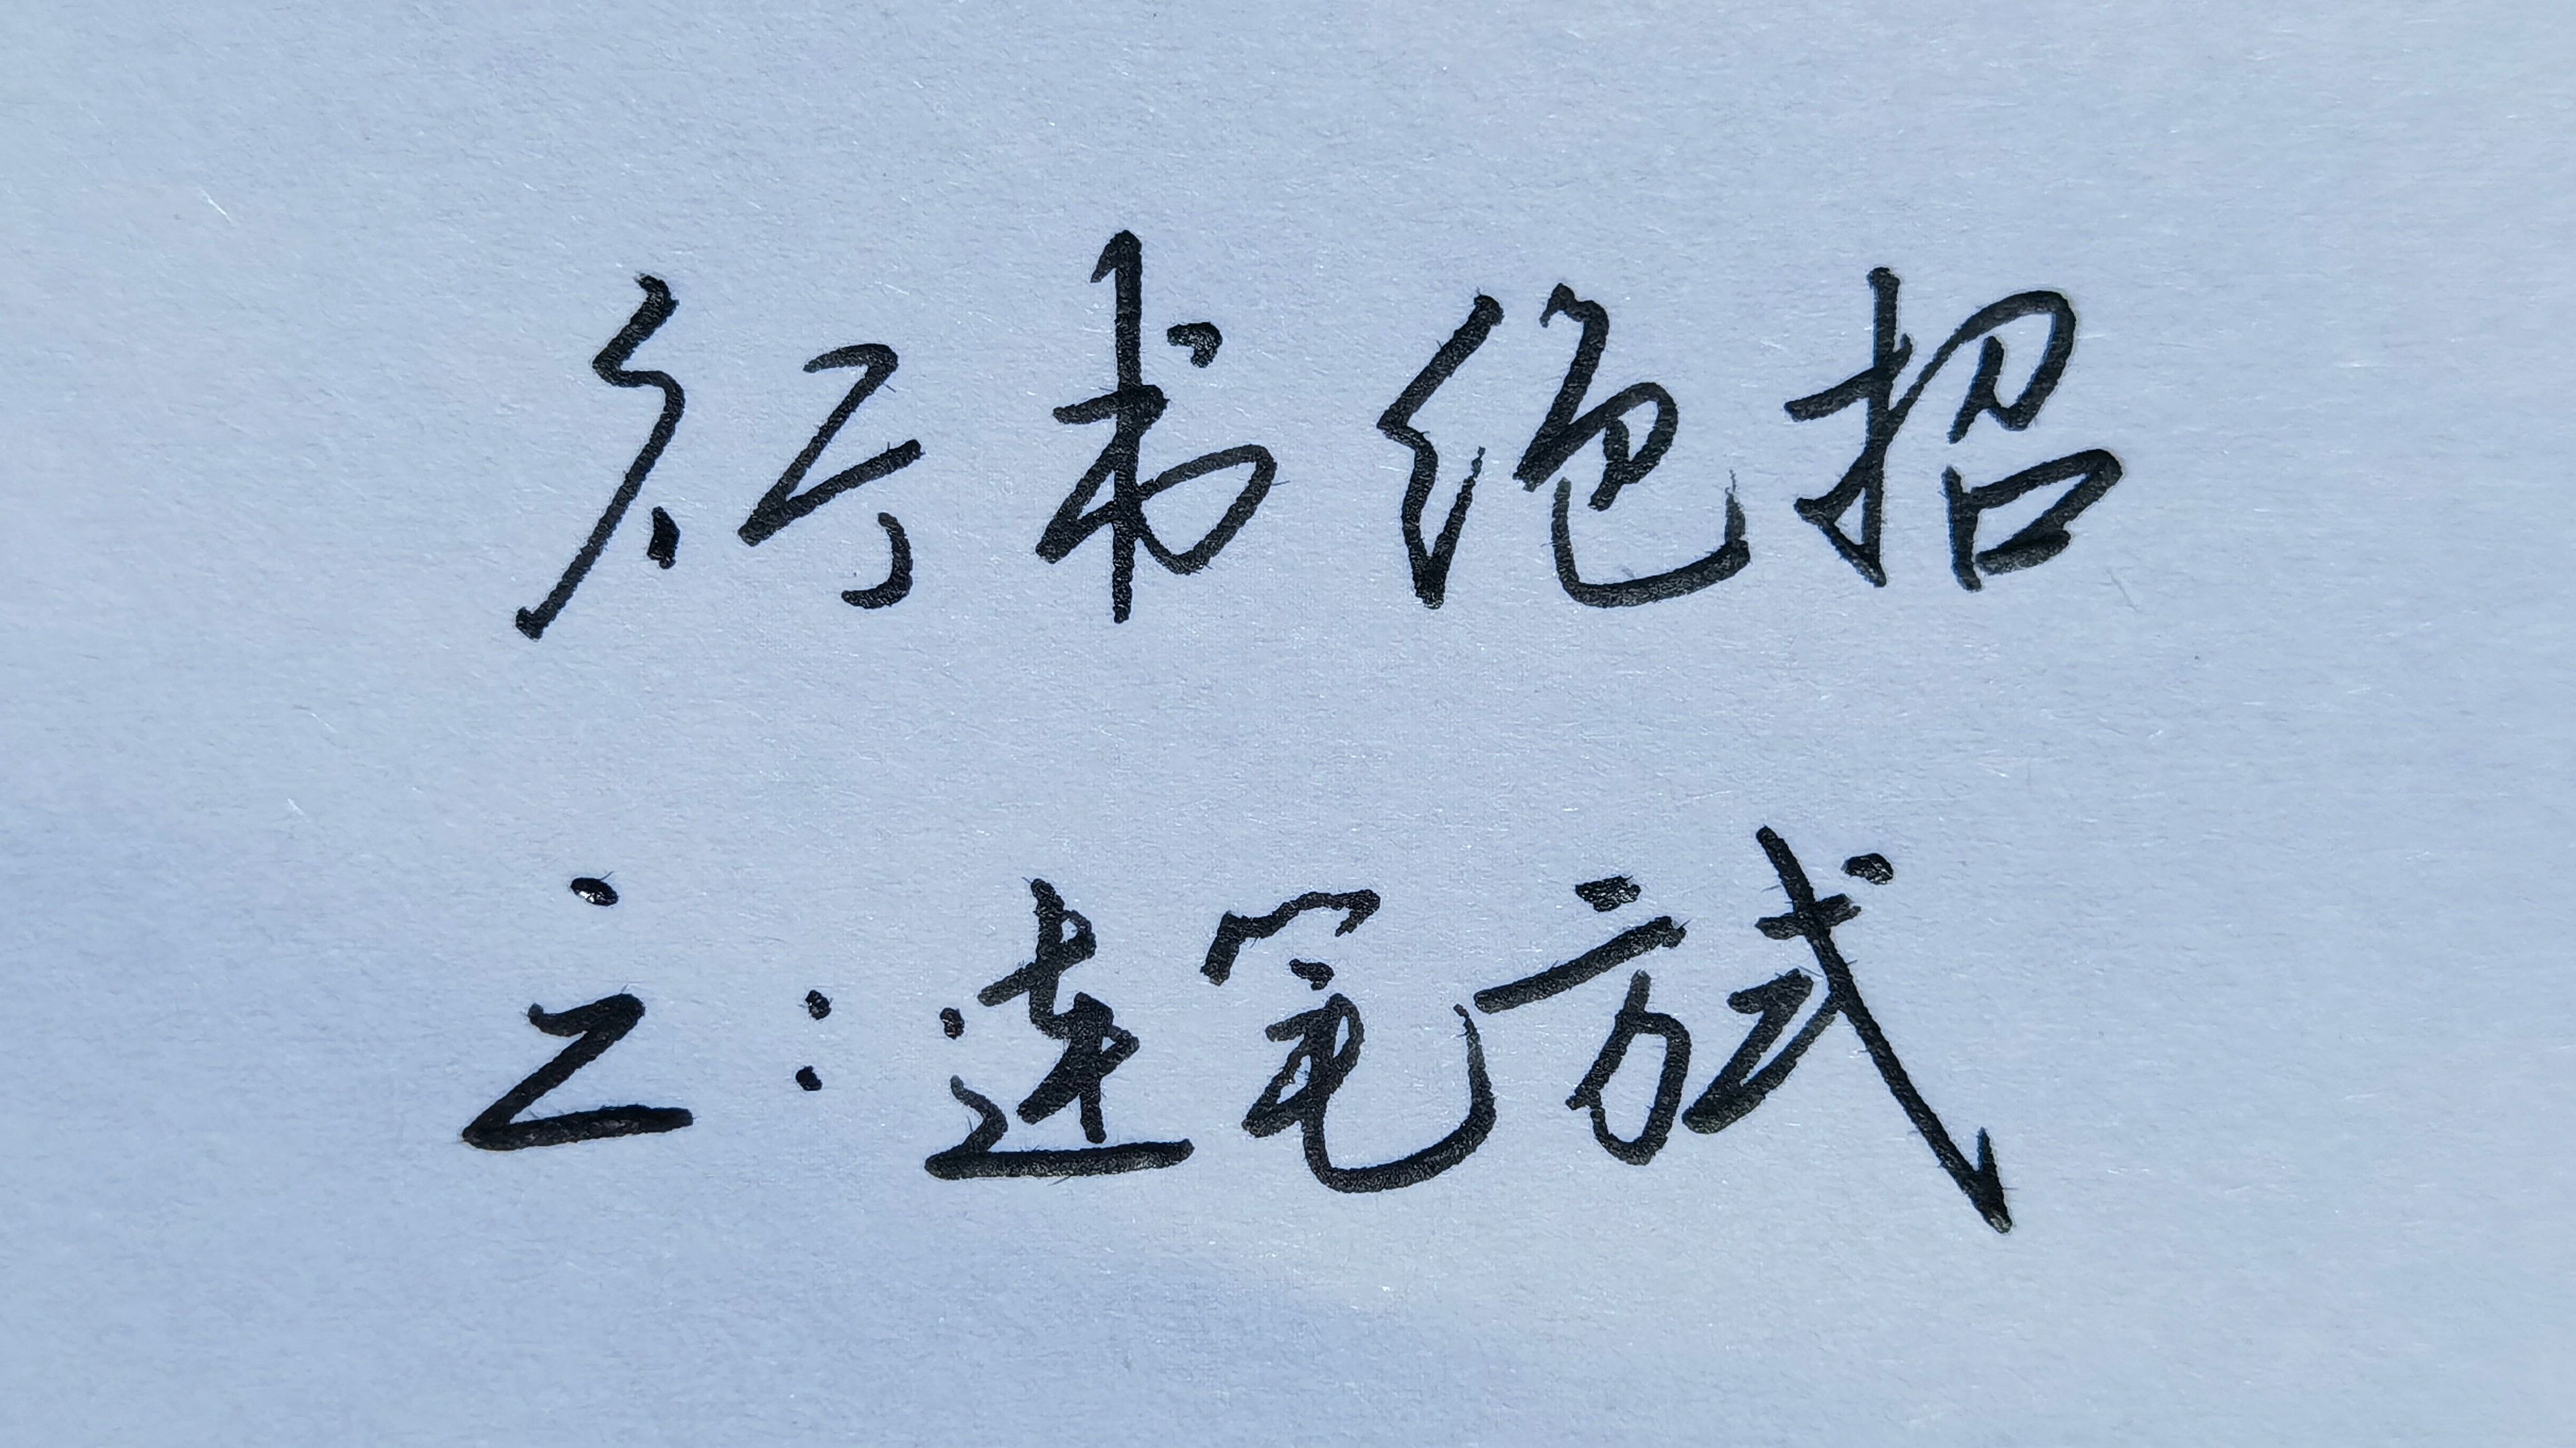 行书绝招
之：连笔方式